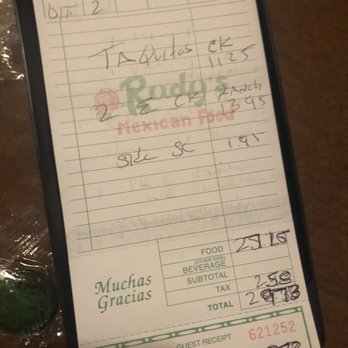 2
TAQUITOS CK
1125
Rudy's
Mexican Food
2 E CK RANCH
1395
Side SC 195
FOOD
(OTHER SIDE)
BEVERAGE
SUBTOTAL
TAX 258
TOTAL
Muchas
Gracias
GUEST RECEIPT 621252